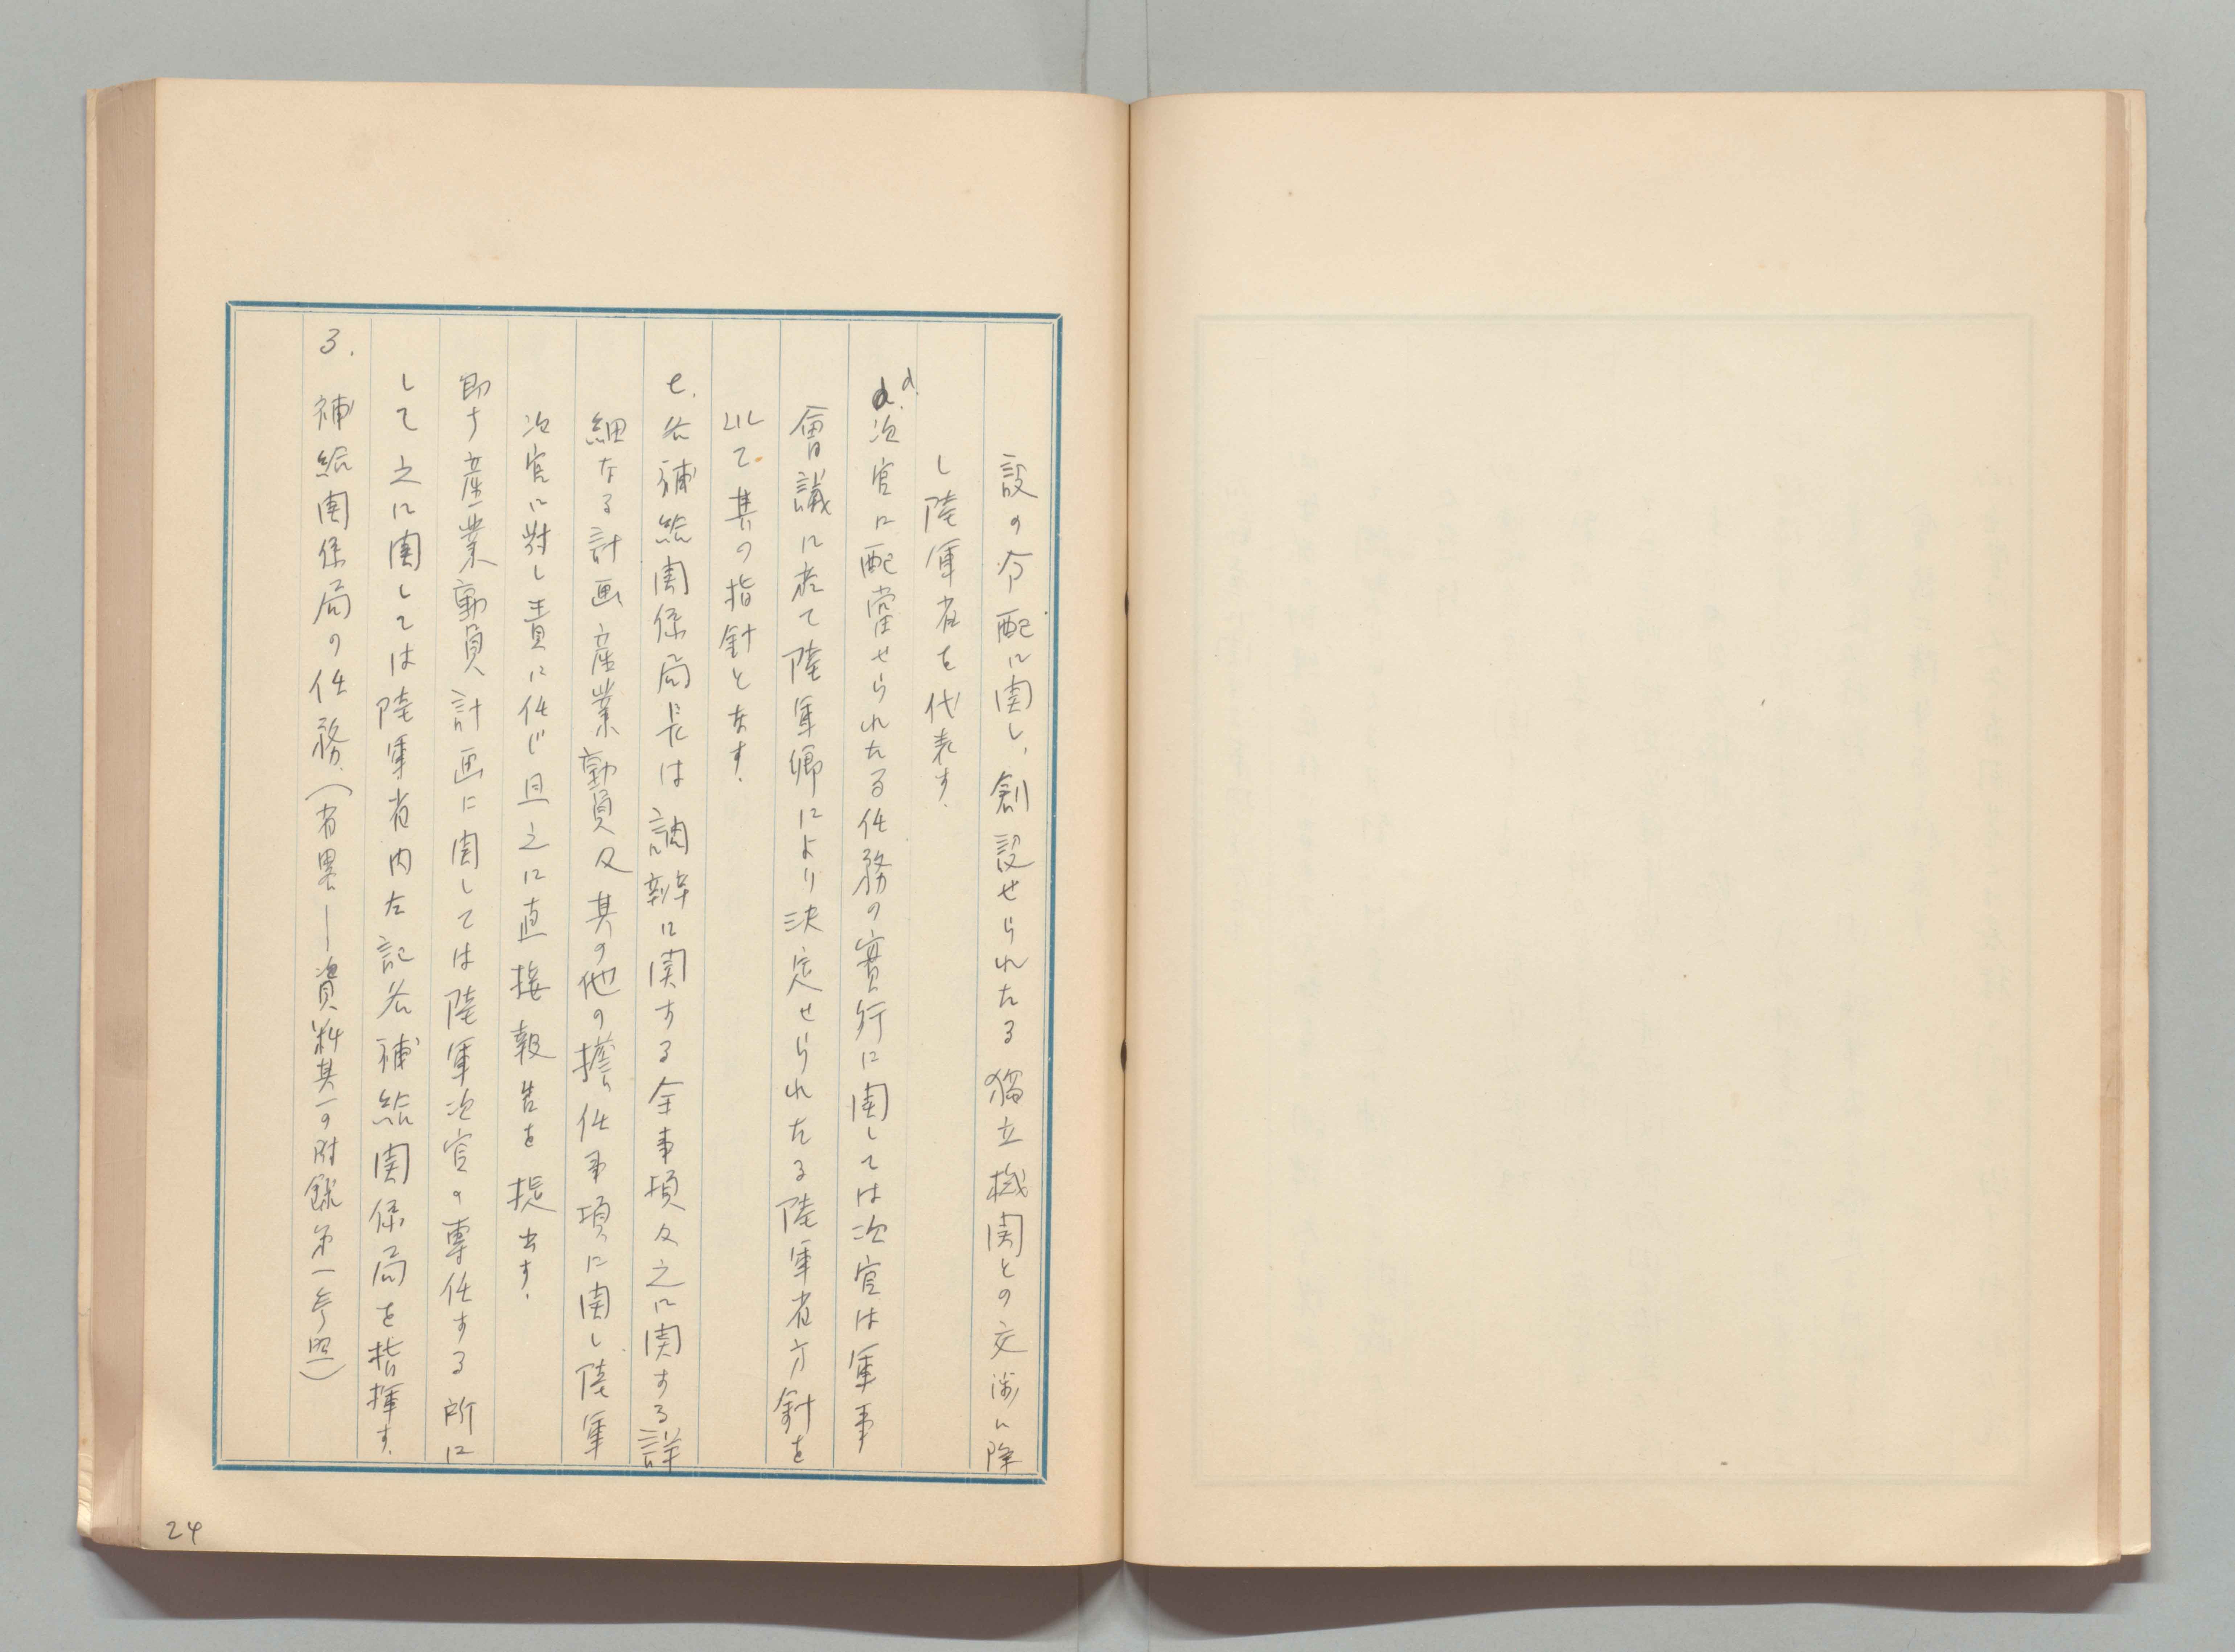 設の分配に関し、創設せられたる独立機関との交渉に際
し陸軍省を代表す.
d.次官に配当せられたる任務の實行に関しては次官は軍事
會議に於て陸軍卿により決定せられたる陸軍省方針を
以て其の指針と為す.
e.各補給関係局長は調辨に関する全事項及之に関する詳
細なる計画産業動員及其の他の擔任事項に関し陸軍
次官に對し責に任じ且之に直接報告を提出す.
即ち産業動員計画に関しては陸軍次官の専任する所に
して之に関しては陸軍省内左記各補給関係局を指揮す.
3. 補給関係局の任務.(省畧―資料其一の附録第一参照)
24